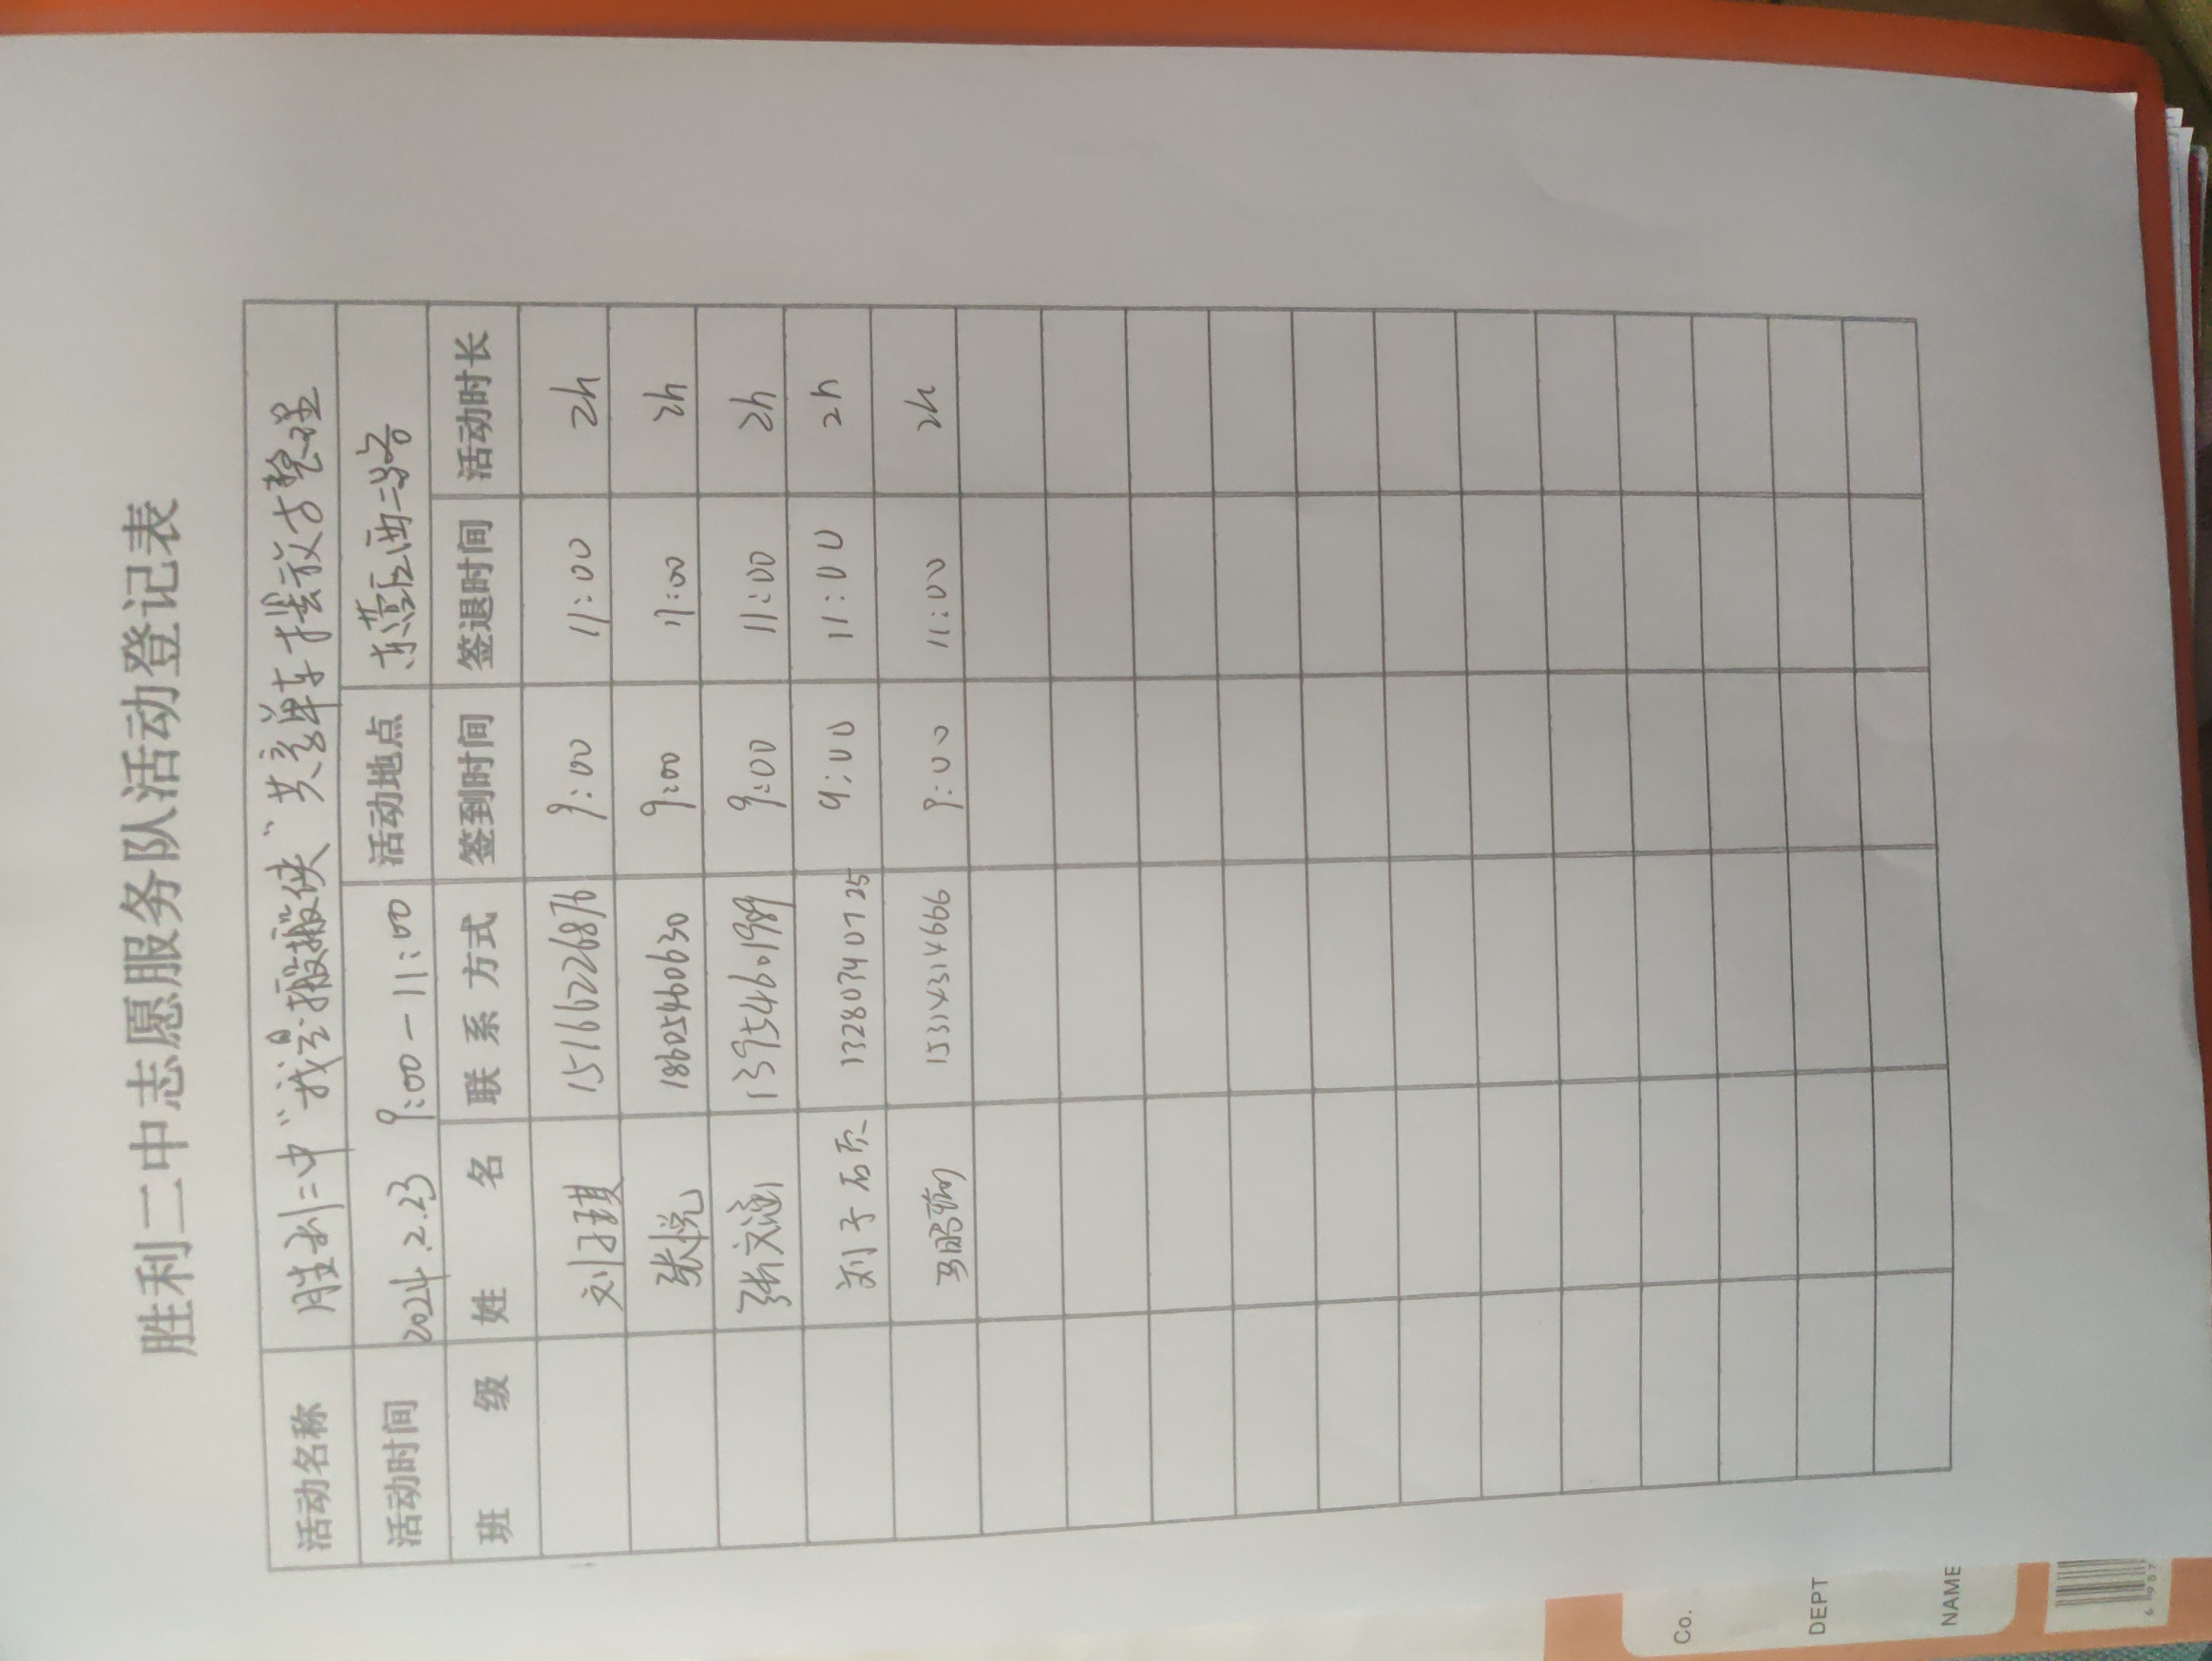 胜利二中志愿服务队活动登记表
活动名称 胜利二中“我是搬搬侠”共享单车摆放与整理
活动时间 2024.2.23 9:00-11:00 活动地点 东营区西二路
班级 姓名 联系方式 签到时间 签退时间 活动时长
刘子琪 15166226876 9:00 11:00 2h
张悦 18605460630 9:00 11:00 2h
张文涵 13954601989 9:00 11:00 2h
刘子硕 13280340725 9:00 11:00 2h
15314314666 9:00 11:00 2h
Co.
DEPT
NAME